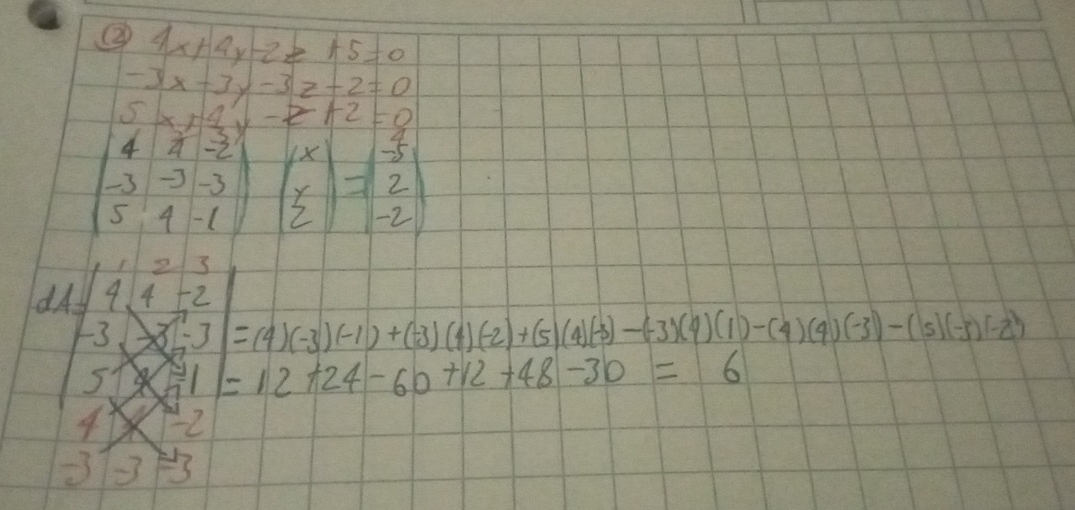 ② 4x+4y-2z+5=0
-3x-3y-3z-2=0
5x+4y-z+2=0
4 4 -2 x -5
-3 -3 -3 y = 2
5 4 -1 z -2
1 2 3
dA= 4 4 -2
-3 -3 -3 =(4)(-3)(-1)+(-3)(4)(-2)+(5)(4)(-3)-(-3)(4)(1)-(4)(4)(-3)-(5)(-3)(-2)
5 4 -1 =12+24-60+12+48-30 = 6
4 4 -2
-3 -3 -3